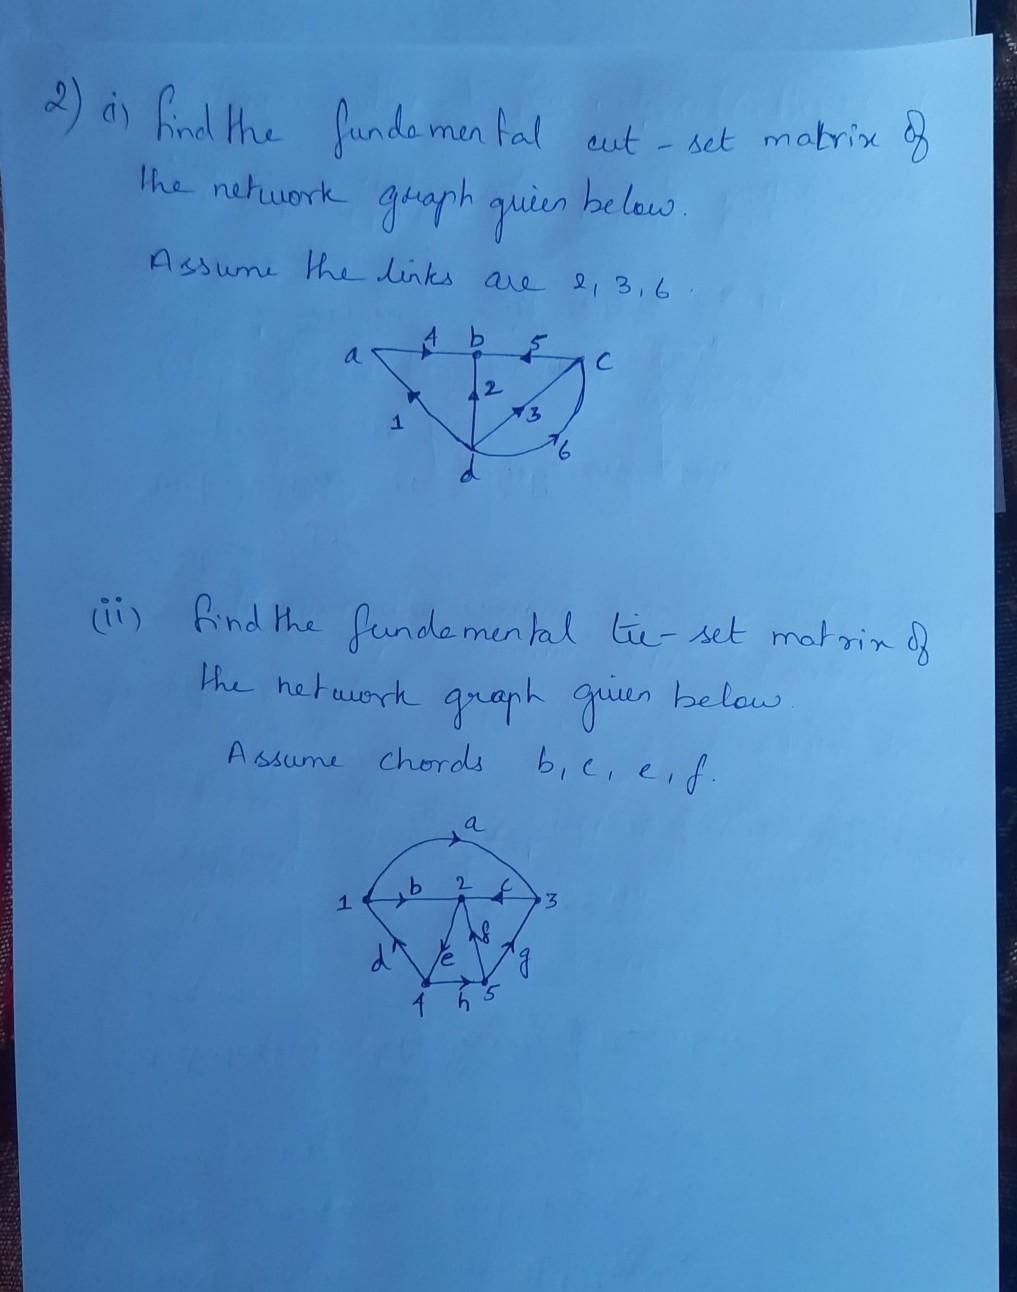 2) i) find the fundamental cut-set matrix of
the network graph given below.
Assume the links are 2, 3, 6.
a 4 b 5 c
2
1 3
6
d
(ii) find the fundamental tie-set matrix of
the network graph given below.
Assume chords b, c, e, f.
a
1 b 2 c 3
d e f g
4 h 5